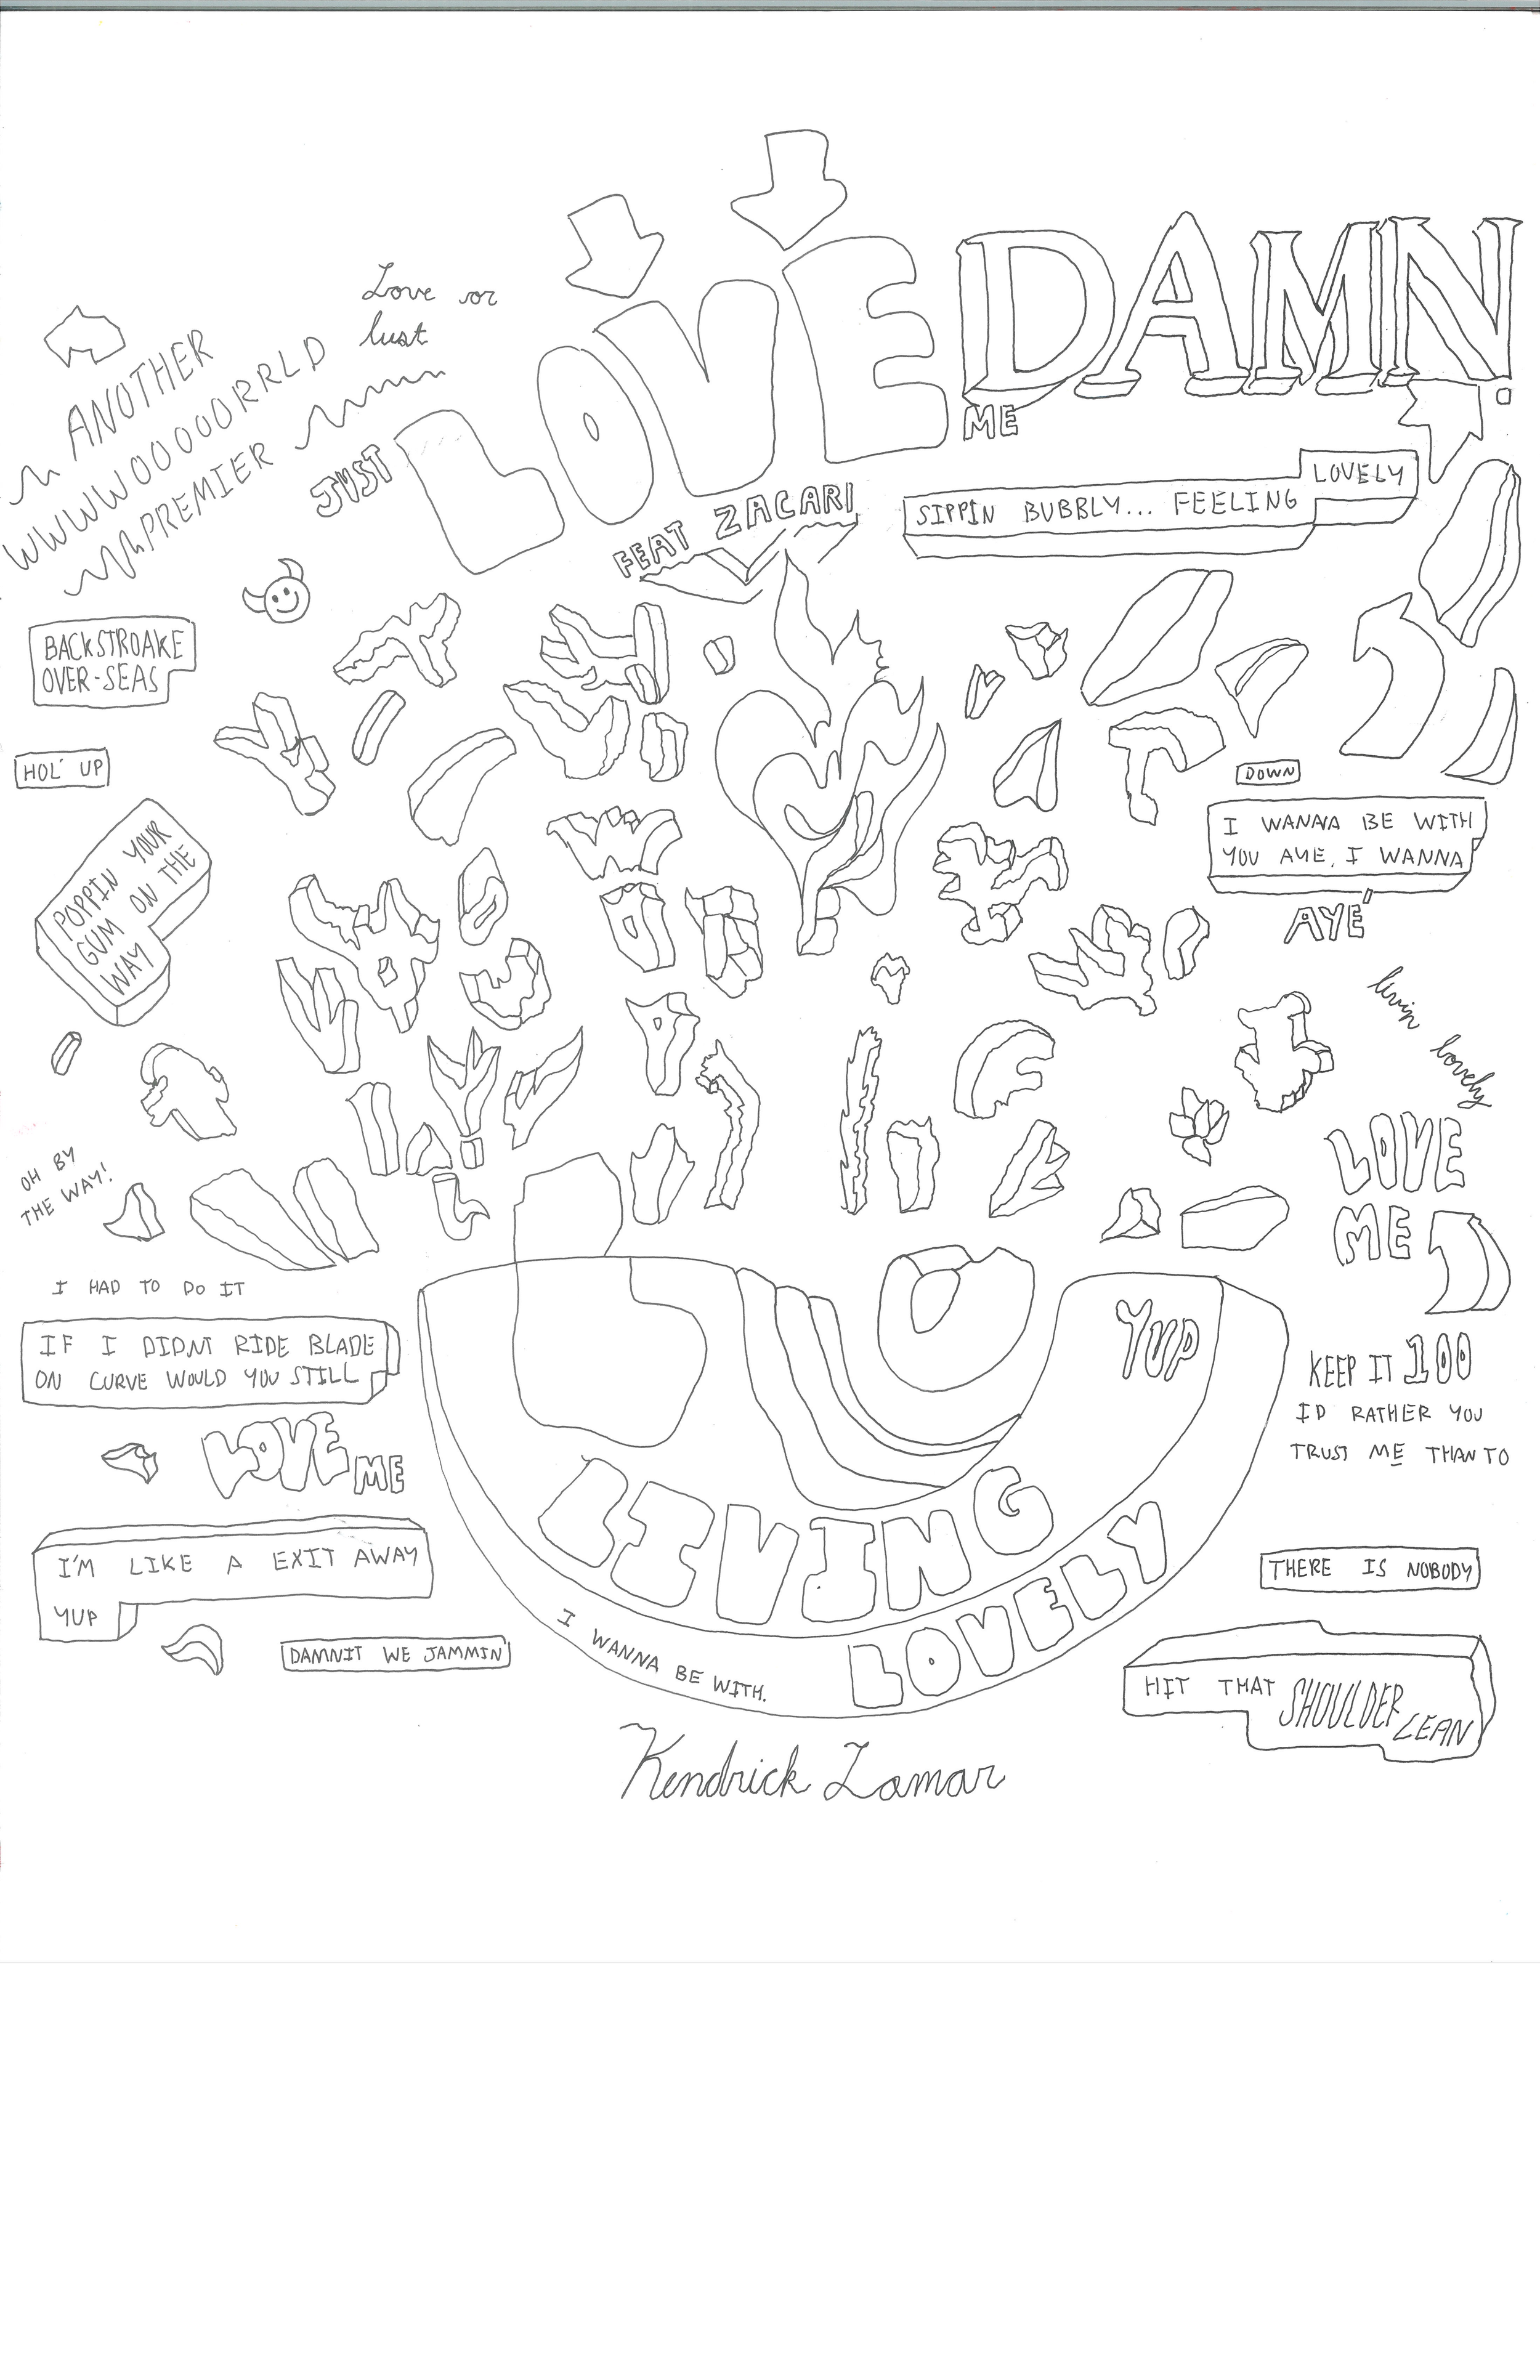 Love or
lust
ANOTHER
WWWWOOOOORRLD
PREMIER
JUST
LOVE
ME
DAMN.
FEAT ZACARI
SIPPIN BUBBLY... FEELING LOVELY
BACKSTROAKE
OVER-SEAS
HOL' UP
POPPIN YOUR
GUM ON THE
WAY
DOWN
I WANNA BE WITH
YOU AYE, I WANNA
AYE'
livin lovely
LOVE
ME
OH BY
THE WAY!
I HAD TO DO IT
IF I DIDNT RIDE BLADE
ON CURVE WOULD YOU STILL
LOVE ME
I'M LIKE A EXIT AWAY
YUP
DAMNIT WE JAMMIN'
YUP
LIVING
LOVELY
I WANNA BE WITH.
KEEP IT 100
ID RATHER YOU
TRUST ME THAN TO
THERE IS NOBODY
HIT THAT SHOULDER LEAN
Kendrick Lamar